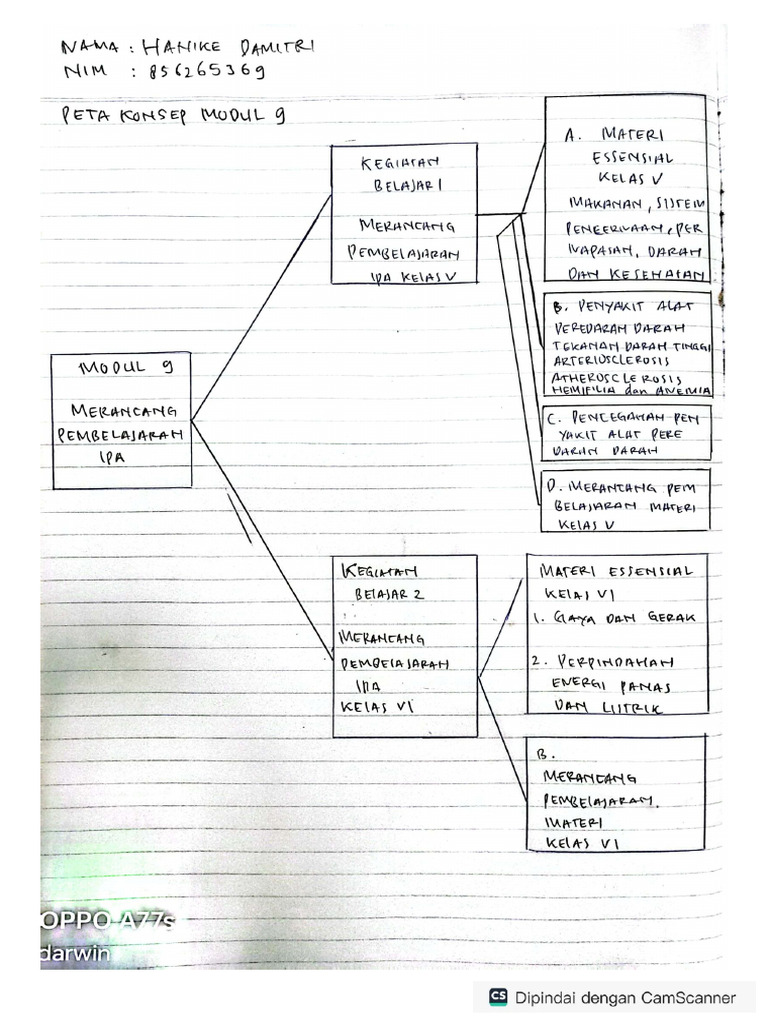 NAMA : HANIKE DAMITRI
NIM : 856265369
PETA KONSEP MODUL 9
KEGIATAN
BELAJAR 1
MERANCANG
PEMBELAJARAN
IPA KELAS V
A. MATERI
ESSENSIAL
KELAS V
MAKANAN, SISTEM
PENCERNAAN, PER
NAPASAN, DARAH
DAN KESEHATAN
B. PENYAKIT ALAT
PEREDARAN DARAH
TEKANAN DARAH TINGGI
ARTERIOSCLEROSIS
ATHEROSCLEROSIS
HEMIFILIA dan ANEMIA
C. PENCEGAHAN PEN
YAKIT ALAT PERE
DARAN DARAH
D. MERANCANG PEM
BELAJARAN MATERI
KELAS V
MODUL 9
MERANCANG
PEMBELAJARAN
IPA
KEGIATAN
BELAJAR 2
MERANCANG
PEMBELAJARAN
IPA
KELAS VI
MATERI ESSENSIAL
KELAS VI
1. GAYA DAN GERAK
2. PERPINDAHAN
ENERGI PANAS
DAN LISTRIK
B.
MERANCANG
PEMBELAJARAN.
MATERI
KELAS VI
OPPO A77s
darwin
CS Dipindai dengan CamScanner